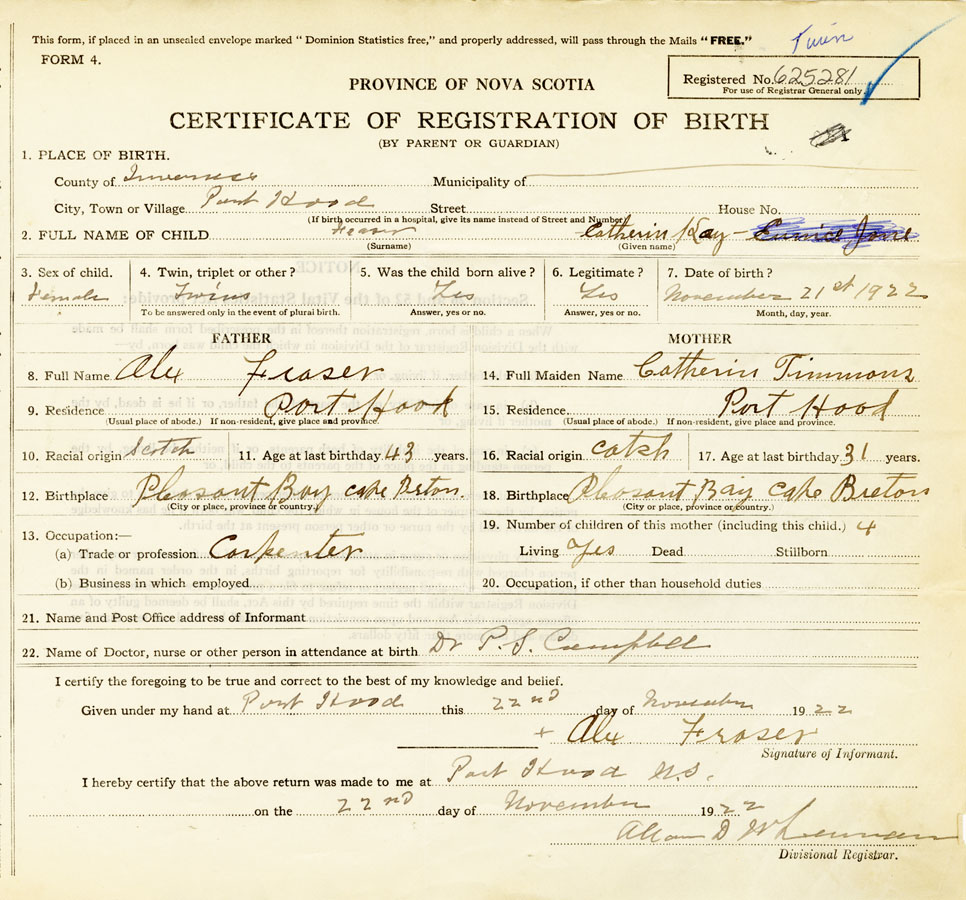 This form, if placed in an unsealed envelope marked " Dominion Statistics free," and properly addressed, will pass through the Mails "FREE." Twin
FORM 4.
Registered No. 625281
For use of Registrar General only.
PROVINCE OF NOVA SCOTIA
CERTIFICATE OF REGISTRATION OF BIRTH
(BY PARENT OR GUARDIAN)
1. PLACE OF BIRTH.
County of Inverness Municipality of
City, Town or Village Port Hood Street House No.
(If birth occurred in a hospital, give its name instead of Street and Number)
2. FULL NAME OF CHILD Fraser Catherin Kay - Eunice Jane
(Surname) (Given name)
3. Sex of child. 4. Twin, triplet or other? 5. Was the child born alive? 6. Legitimate? 7. Date of birth?
Female Twins Yes Yes November 21st 1922
To be answered only in the event of plural birth. Answer, yes or no. Answer, yes or no. Month, day, year.
FATHER MOTHER
8. Full Name Alex Fraser 14. Full Maiden Name Catherin Timmons
9. Residence Port Hood 15. Residence Port Hood
(Usual place of abode.) If non-resident, give place and province. (Usual place of abode.) If non-resident, give place and province.
10. Racial origin Scotch 11. Age at last birthday 43 years. 16. Racial origin 17. Age at last birthday 31 years.
12. Birthplace Pleasant Bay Cape Breton 18. Birthplace Pleasant Bay Cape Breton
(City or place, province or country.) (City or place, province or country.)
13. Occupation:— 19. Number of children of this mother (including this child.) 4
(a) Trade or profession Carpenter Living Yes Dead Stillborn
(b) Business in which employed 20. Occupation, if other than household duties
21. Name and Post Office address of Informant
22. Name of Doctor, nurse or other person in attendance at birth Dr P. S. Campbell
I certify the foregoing to be true and correct to the best of my knowledge and belief.
Given under my hand at Port Hood this 22nd day of November 1922
+ Alex Fraser
Signature of Informant.
I hereby certify that the above return was made to me at Port Hood N.S.
on the 22nd day of November 1922
Allan D
Divisional Registrar.